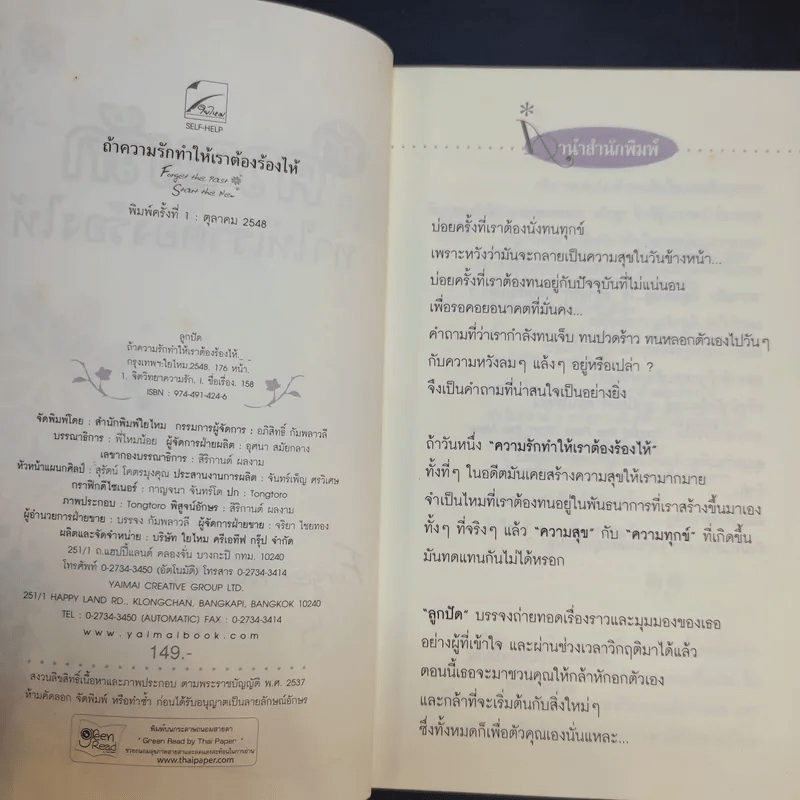 ใยไหม
SELF-HELP
ถ้าความรักทำให้เราต้องร้องไห้
Forget the Past
Start the New
พิมพ์ครั้งที่ 1 : ตุลาคม 2548
ลูกปัด
ถ้าความรักทำให้เราต้องร้องไห้.
กรุงเทพฯ:ใยไหม.2548. 176 หน้า.
1. จิตวิทยาความรัก. I. ชื่อเรื่อง. 158
ISBN : 974-491-424-6
จัดพิมพ์โดย : สำนักพิมพ์ใยไหม กรรมการผู้จัดการ : อภิสิทธิ์ กัมพลาวลี
บรรณาธิการ : พี่ไหมน้อย ผู้จัดการฝ่ายผลิต : อุศนา สมัยกลาง
เลขากองบรรณาธิการ : สิริกานต์ ผลงาม
หัวหน้าแผนกศิลป์ : สุรัตน์ โคตรมุงคุณ ประสานงานการผลิต : จันทร์เพ็ญ ศรวิเศษ
กราฟิกดีไซเนอร์ : กาญจนา จันทร์โต ปก : Tongtoro
ภาพประกอบ : Tongtoro พิสูจน์อักษร : สิริกานต์ ผลงาม
ผู้อำนวยการฝ่ายขาย : บรรจง กัมพลาวลี ผู้จัดการฝ่ายขาย : จริยา ไชยทอง
ผลิตและจัดจำหน่าย : บริษัท ใยไหม ครีเอทีฟ กรุ๊ป จำกัด
251/1 ถ.แฮปปี้แลนด์ คลองจั่น บางกะปิ กทม. 10240
โทรศัพท์ 0-2734-3450 (อัตโนมัติ) โทรสาร 0-2734-3414
YAIMAI CREATIVE GROUP LTD.
251/1 HAPPY LAND RD., KLONGCHAN, BANGKAPI, BANGKOK 10240
TEL : 0-2734-3450 (AUTOMATIC) FAX : 0-2734-3414
www.yaimaibook.com
149.-
สงวนลิขสิทธิ์เนื้อหาและภาพประกอบ ตามพระราชบัญญัติ พ.ศ. 2537
ห้ามคัดลอก จัดพิมพ์ หรือทำซ้ำ ก่อนได้รับอนุญาตเป็นลายลักษณ์อักษร
green Read
พิมพ์บนกระดาษถนอมสายตา
"Green Read by Thai Paper"
ช่วยถนอมสุขภาพสายตาและลดแสงสะท้อนในการอ่าน
www.thaipaper.com
คำนำสำนักพิมพ์
บ่อยครั้งที่เราต้องนั่งทนทุกข์
เพราะหวังว่ามันจะกลายเป็นความสุขในวันข้างหน้า...
บ่อยครั้งที่เราต้องทนอยู่กับปัจจุบันที่ไม่แน่นอน
เพื่อรอคอยอนาคตที่มั่นคง...
คำถามที่ว่าเรากำลังทนเจ็บ ทนปวดร้าว ทนหลอกตัวเองไปวันๆ
กับความหวังลมๆ แล้งๆ อยู่หรือเปล่า ?
จึงเป็นคำถามที่น่าสนใจเป็นอย่างยิ่ง
ถ้าวันหนึ่ง "ความรักทำให้เราต้องร้องไห้"
ทั้งที่ๆ ในอดีตมันเคยสร้างความสุขให้เรามากมาย
จำเป็นไหมที่เราต้องทนอยู่ในพันธนาการที่เราสร้างขึ้นมาเอง
ทั้งๆ ที่จริงๆ แล้ว "ความสุข" กับ "ความทุกข์" ที่เกิดขึ้น
มันทดแทนกันไม่ได้หรอก
"ลูกปัด" บรรจงถ่ายทอดเรื่องราวและมุมมองของเธอ
อย่างผู้ที่เข้าใจ และผ่านช่วงเวลาวิกฤติมาได้แล้ว
ตอนนี้เธอจะมาชวนคุณให้กล้าหักอกตัวเอง
และกล้าที่จะเริ่มต้นกับสิ่งใหม่ๆ
ซึ่งทั้งหมดก็เพื่อตัวคุณเองนั่นแหละ...